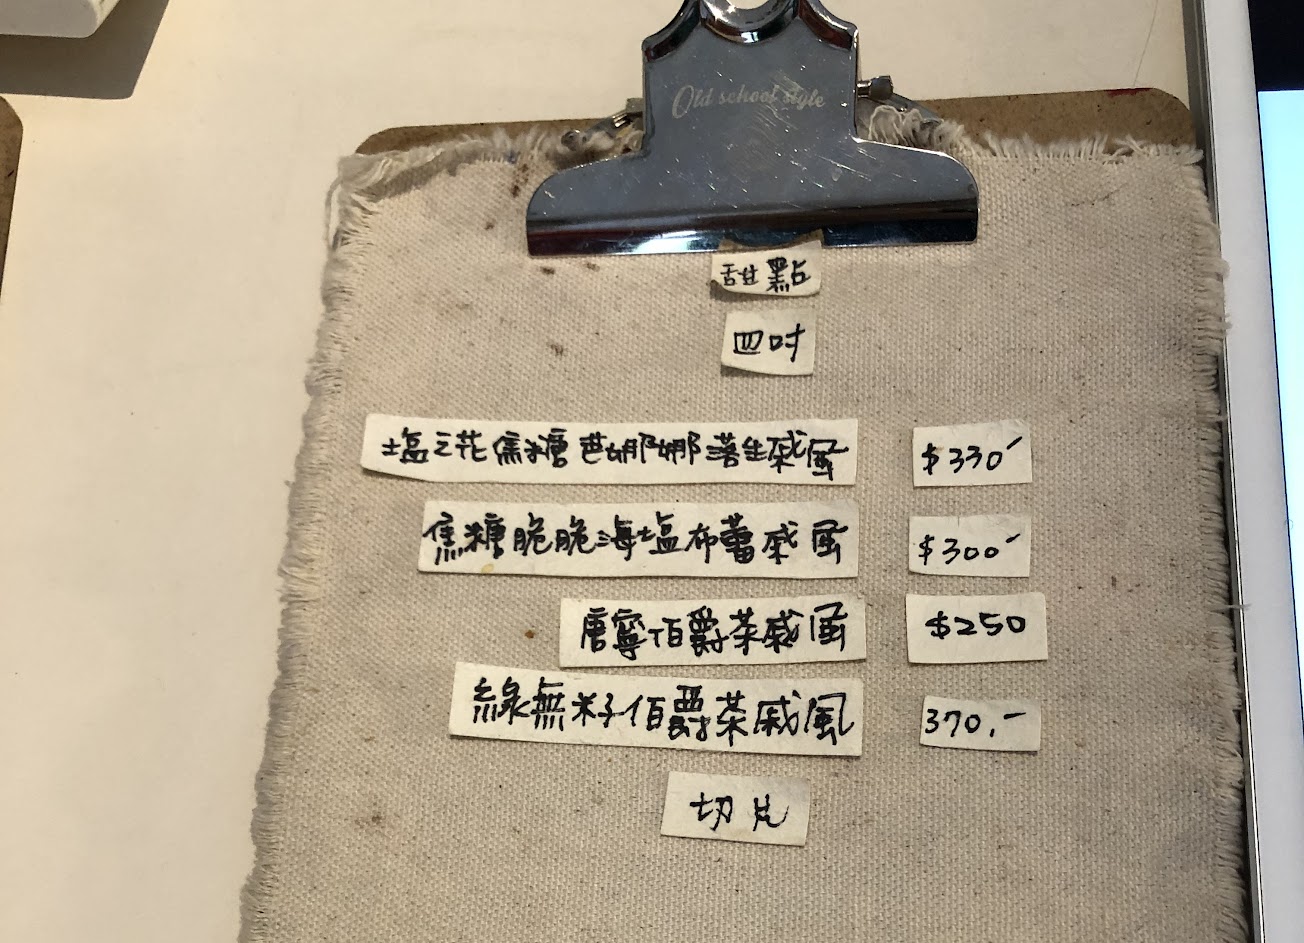 Old school style
甜點
四吋
塩之花焦糖芭娜娜落生戚風 $330-
焦糖脆脆海塩布蕾戚風 $300-
唐寧伯爵茶戚風 $250
綠無籽伯爵茶戚風 370.-
切片